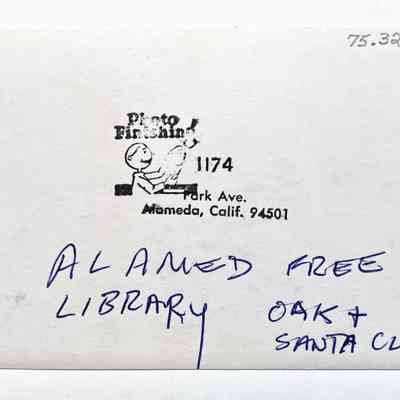 75.32
Photo
Finishing
1174
Park Ave.
Alameda, Calif. 94501
ALAMED FREE
LIBRARY OAK +
SANTA CL